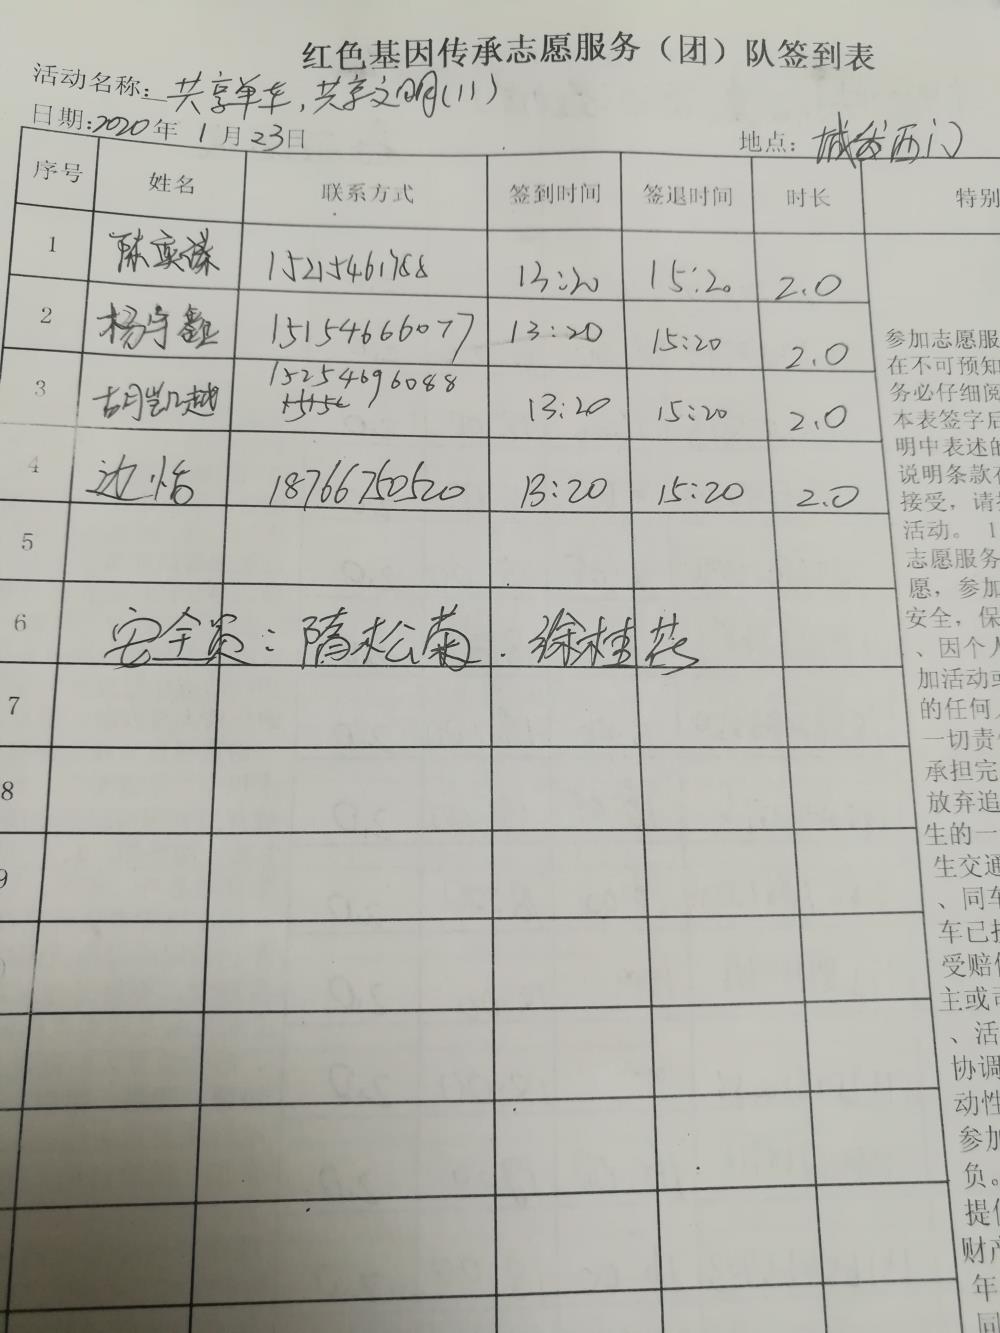 红色基因传承志愿服务（团）队签到表
活动名称：共享单车，共享文明（11）
日期：2020年 1月 23日
地点：城发西门
序号 姓名 联系方式 签到时间 签退时间 时长 特别
1 陈奕 15215461788 13:20 15:20 2.0
2 杨宇鑫 15154666077 13:20 15:20 2.0
3 胡凯越 15254696088 13:20 15:20 2.0
4 边怡 18766750520 13:20 15:20 2.0
5
6 安全员：隋松菊．徐桂芸
7
8
9
参加志愿服
在不可预知
务必仔细阅
本表签字后
明中表述的
说明条款有
接受，请
活动。 1
志愿服务
愿，参加
安全，保
、因个人
加活动或
的任何
一切责
承担完
放弃追
生的一
生交通
、同车
车已
受赔
主或
、活
协调
动性
参加
负。
提供
财产
年
同